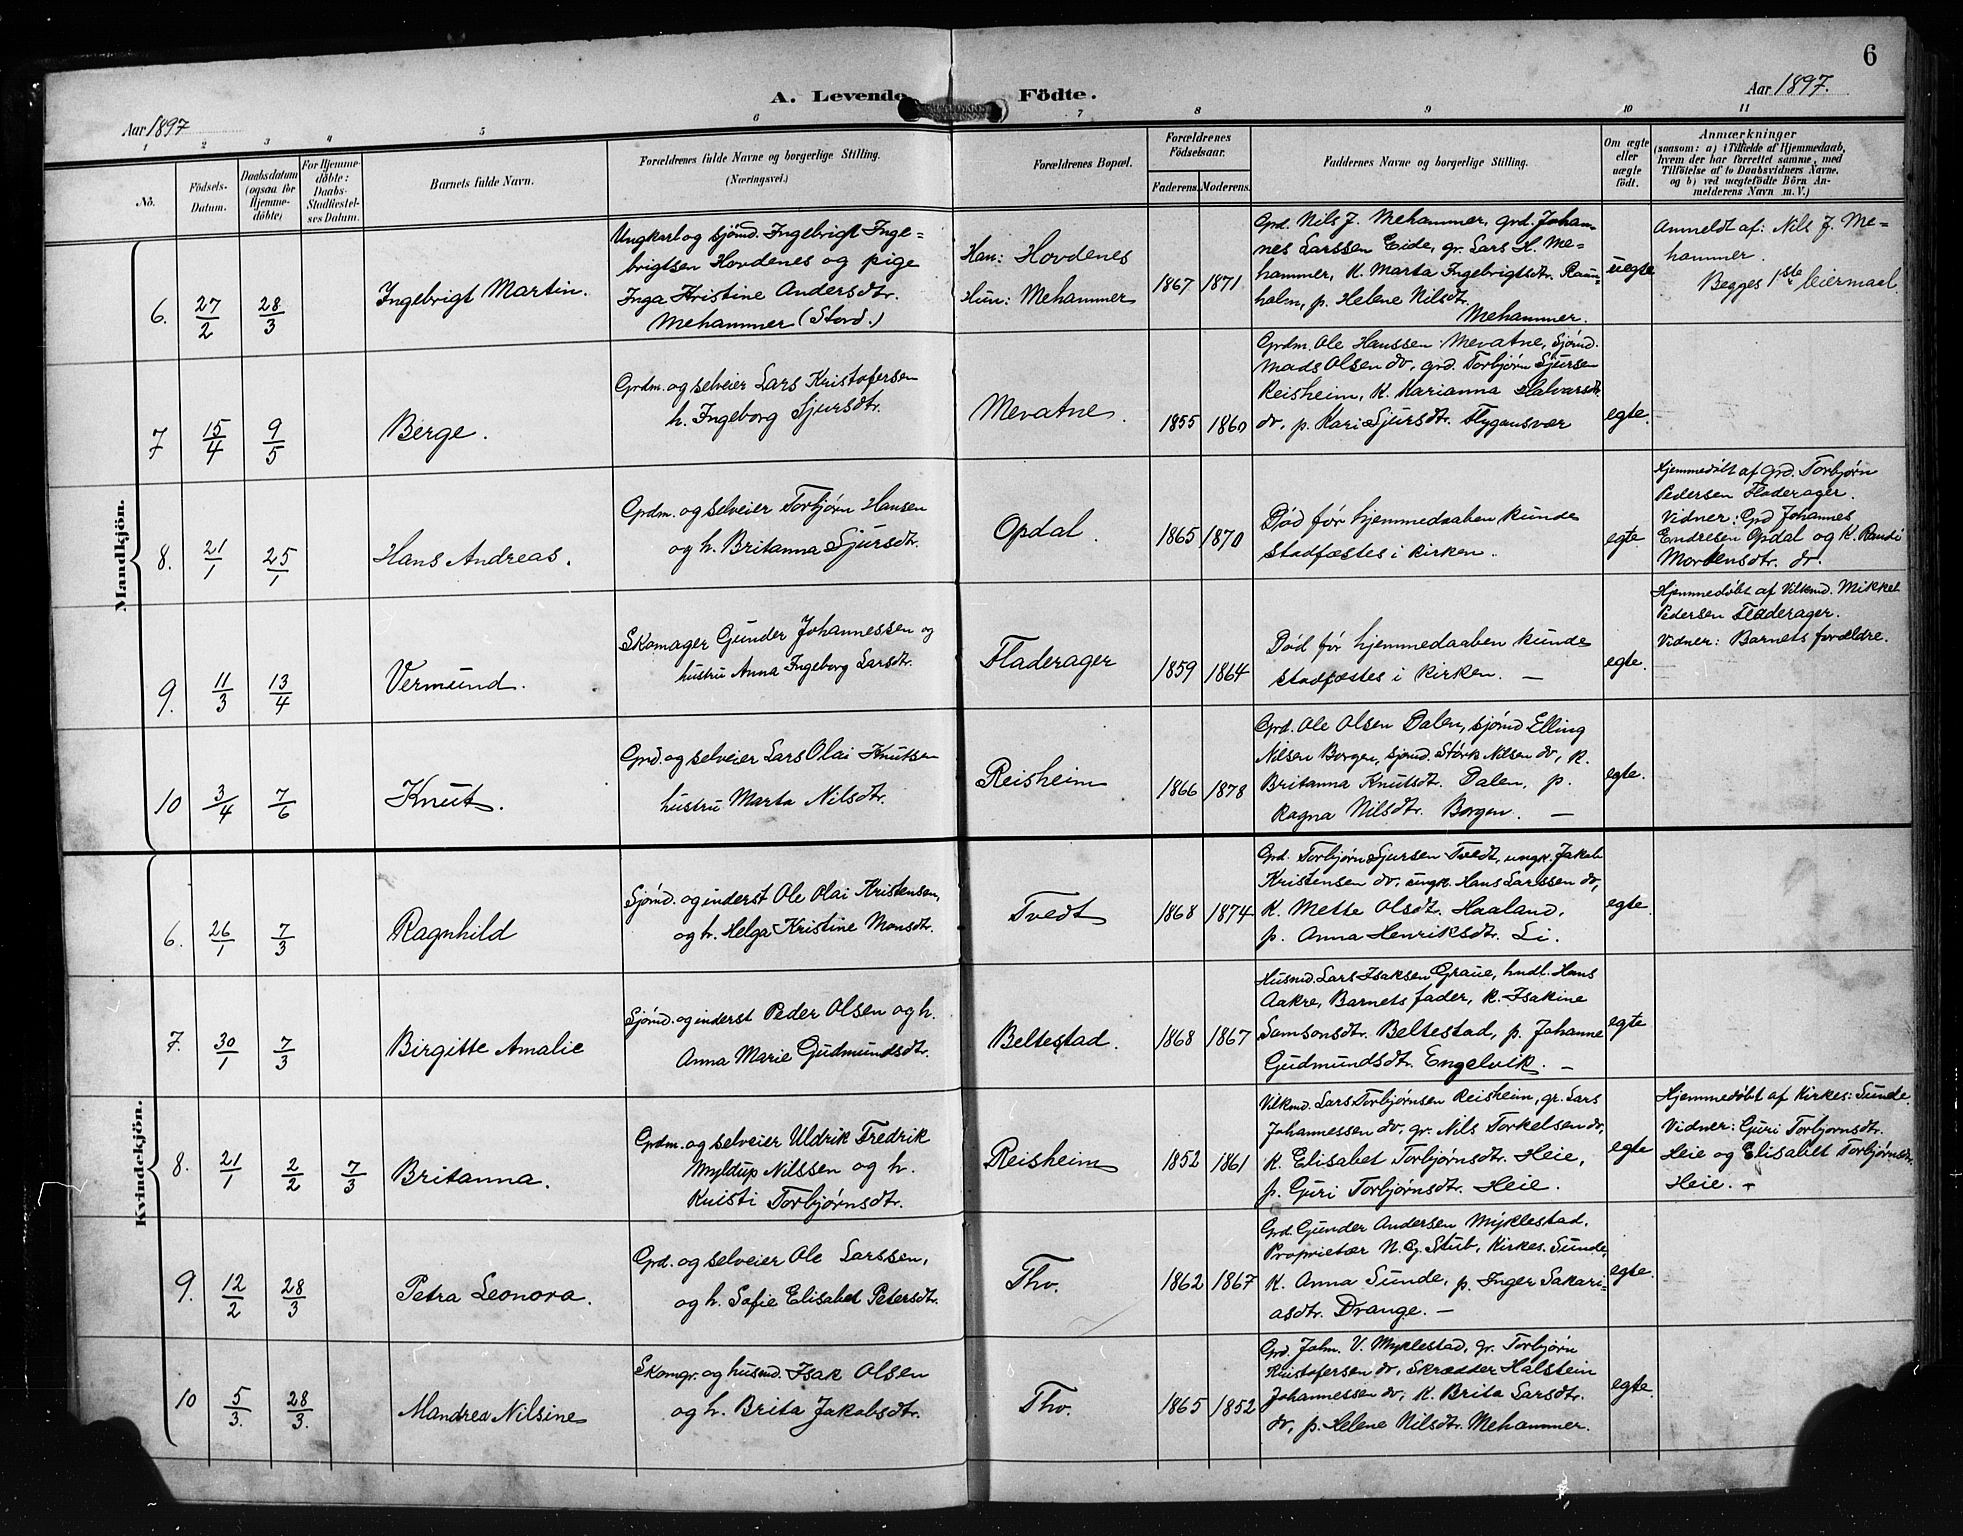 6
A. Levende Födte.
Aar 1897
Aar 1897.
1 2 3 4 5 6 7 8 9 10 11
No.
Födsels-
Datum.
Daabsdatum
(ogsaa for
Hjemme-
döbte)
For Hjemme-
döbte:
Daabs-
Stadfæstel-
ses Datum.
Barnets fulde Navn.
Forældrenes fulde Navne og borgerlige Stilling.
(Næringsvei.)
Forældrenes Bopæl.
Forældrenes
Födselsaar.
Faderens. Moderens.
Faddernes Navne og borgerlige Stilling.
Om ægte
eller
uægte
födt.
Anmærkninger
(saasom: a) i Tilfælde af Hjemmedaab,
hvem der har forrettet samme, med
Tilföielse af to Daabsvidners Navne,
og b) ved uægtefödte Börn An-
melderens Navn m. V.)
Mandkjön.
6. 27/2 28/3
Ingebrigt Martin.
Ungkarl og sjömd. Ingebrigt Inge=
brigtsen Hovdenes og pige
Inga Kristine Andersdtr.
Mehammer (Stord.)
Han: Hovdenes
Hun: Mehammer
1867 1871
Grd. Nils J. Mehammer, grd. Johan-
nes Larssen Eide, gr. Lars H. Me-
hammer, K. Marta Ingebrigtsdtr. Raun-
holm, p. Helene Nilsdtr.
Mehammer.
uegte
Anmeldt af: Nils J. Me=
hammer.
Begges 1ste leiermaal.
7 15/4 9/5
Berge.
Grdm. og selveier Lars Kristofersen
h. Ingeborg Sjursdtr.
Mevatne.
1855 1860
Grdm. Ole Hanssen Mevatne, Sjömd.
Mads Olsen do, grd. Torbjørn Sjursen
Reisheim, K. Marianna Halvarsdt.
do, p. Kari Sjursdtr. Flygansvær
egte.
8. 21/1 25/1
Hans Andreas.
Grdm. og selveier Torbjørn Hansen
og h. Britanna Sjursdtr.
Opdal.
1865 1870
Død før hjemmedaaben kunde
stadfæstes i kirken.
egte
Hjemmedøbt af Grd. Torbjørn
Pedersen Fladerager.
Vidner: Grd Johannes
Endresen Opdal og K. Randi
Mortensdtr. do.
9. 11/3 13/4
Vermund.
Skomager Gunder Johannessen og
hustru Anna Ingeborg Larsdtr.
Fladerager
1859 1864
Død før hjemmedaaben kunde
stadfæstes i kirken. —
egte.
Hjemmedøbt af Vilkmd. Mikkel
Pedersen Fladerager.
Vidner: Barnets forældre.
10 3/4 7/6
Knut.
Grd. og selveier Lars Olai Knutsen
hustru Marta Nilsdtr.
Reisheim
1866 1878
Grd. Ole Olsen Dalen, sjömd Elling
Nilsen Borgen, sjömd. Størk Nilsen do, K.
Britanna Knutsdt. Dalen, p.
Ragna Nilsdtr. Borgen. —
egte.
Kvindekjön.
6. 26/1 7/3
Ragnhild
Sjömd. og inderst Ole Olai Kristensen,
og h. Helga Kristine Monsdtr.
Tvedt
1868 1874
Grd. Torbjørn Sjursen Tvedt, ungk. Jakob
Kristensen do, ungk. Hans Larssen do,
K. Mette Olsdtr. Haaland,
p. Anna Henriksdtr. Li.
egte.
7. 30/1 7/3
Birgitte Amalie
Sjömd. og inderst Peder Olsen og h.
Anna Marie Gudmundsdtr.
Beltestad.
1868 1867
Husmd. Lars Isaksen Graue, hndl. Hans
Aakre, Barnets fader, K. Isakine
Samsonsdtr. Beltestad, p. Johanne
Gudmundsdtr. Engelvik. —
egte
8. 21/1 2/2 7/3
Britanna.
Grdm. og selveier Uldrik Fredrik
Myldup Nilssen og h.
Kristi Torbjørnsdtr.
Reisheim
1852 1861
Vilkmd. Lars Torbjørnsen Reisheim, gr. Lars
Johannessen do, gr. Nils Torkelsen do,
K. Elisabet Torbjørnsdtr. Heie,
p. Guri Torbjørnsdtr. Heie.
egte
Hjemmedøbt af Kirkes: Sunde.
Vidner: Guri Torbjørnsdtr.
Heie og Elisabet Torbjørnsdtr.
Heie. —
9. 12/2 28/3
Petra Leonora.
Grd. og selveier Ole Larssen,
og h. Sofie Elisabet Petersdtr.
Tho.
1862 1867
Grd. Gunder Andersen Myklestad.
Proprietær N. Eg. Stub, Kirkes. Sunde,
K. Anna Sunde, p. Inger Sakari-
asdtr. Drange. —
egte.
10 5/3. 28/3.
Mandrea Nilsine
Skomgr. og husmd. Isak Olsen
og h. Brita Jakobsdtr.
Tho.
1865 1852
Grd. Johm. V. Myklestad, gr. Torbjørn
Kristofersen do, Skrædder Halstein
Johannessen do, K. Brita Larsdtr.
do, p. Helene Nilsdtr. Mehammer.
egte.